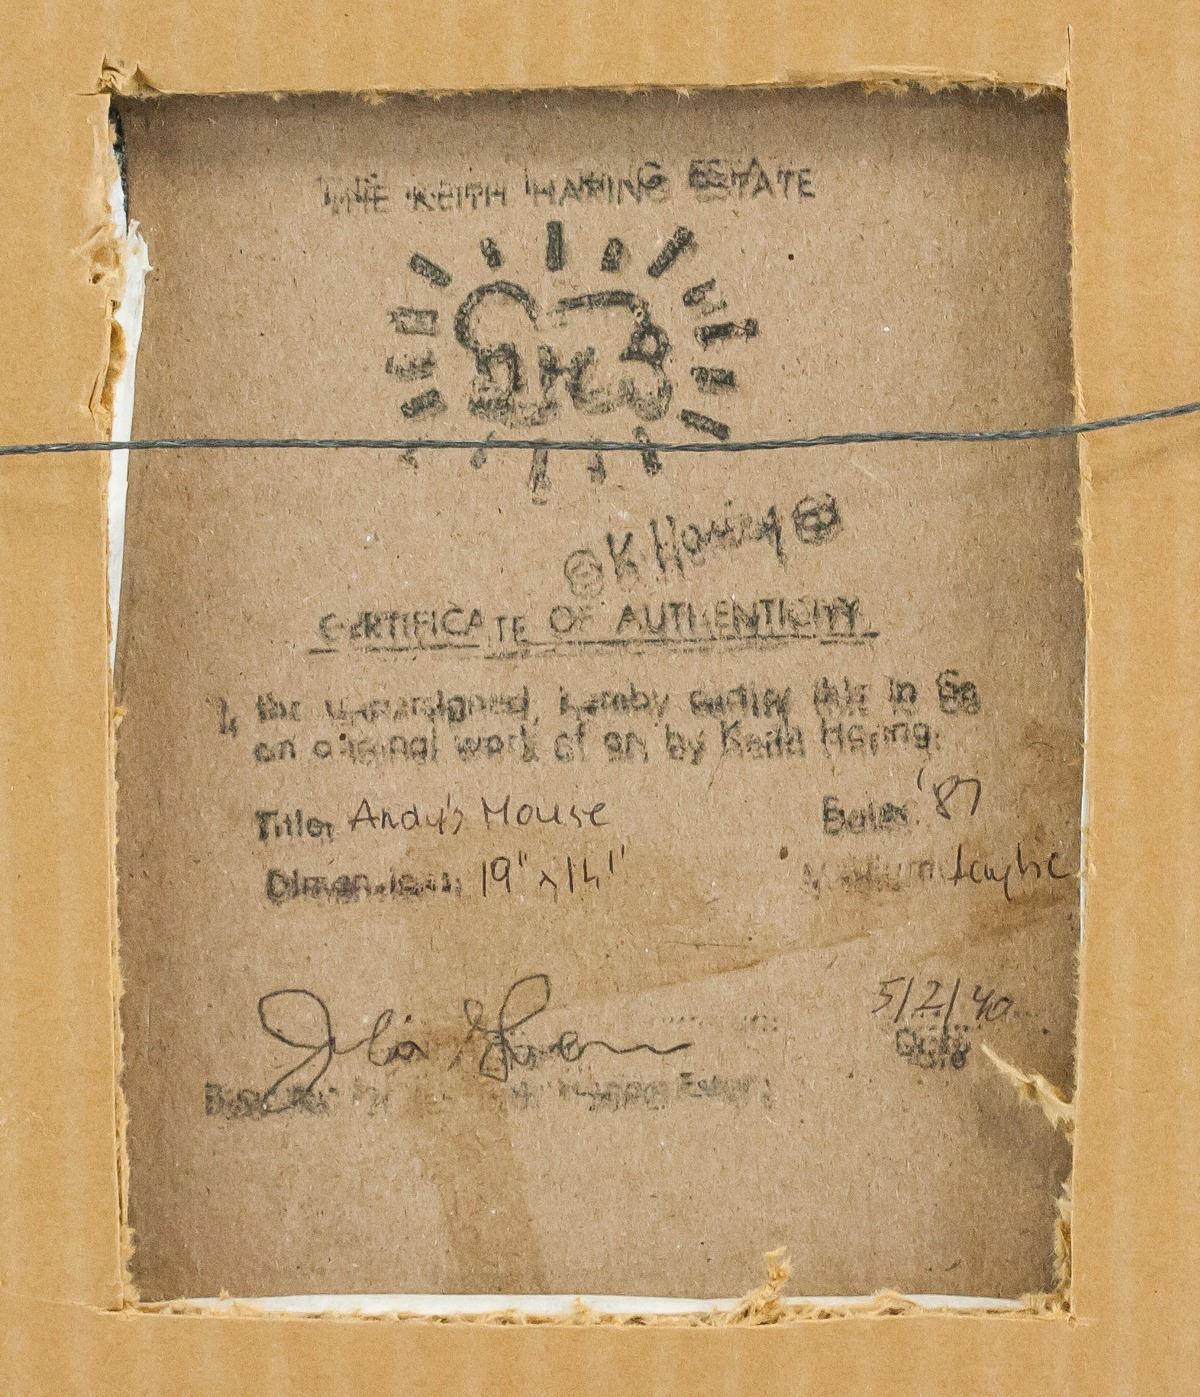 THE KEITH HARING ESTATE
K Haring
CERTIFICATE OF AUTHENTICITY
I, the undersigned, hereby certify this to be
an original work of art by Keith Haring.
Title: Andy's Mouse Date: '87
Dimensions: 19" x 14" Medium: Acrylic
5/2/90
Date
Keith Haring Estate